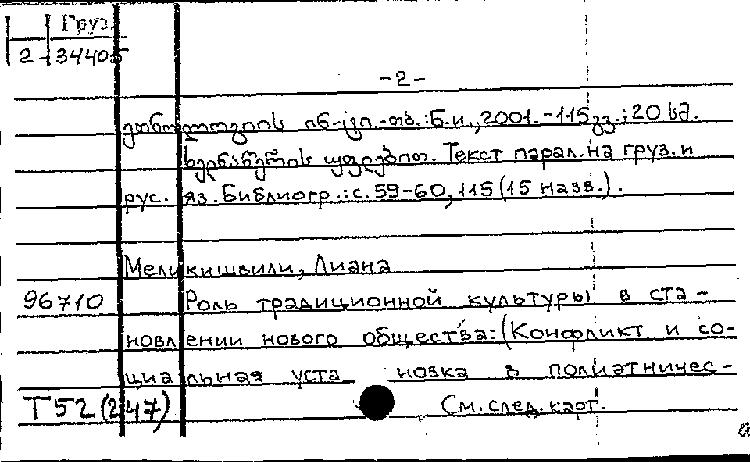 Груз.
2-34405
-2-
ეთნოლოგიის ინ-ტი.-თბ.:Б.и.,2001.-115გვ.;20 სმ.
საქართველოს Текст парал. на груз. и
рус. яз. Библиогр.: с. 59-60, 115 (15 назв.).
Меликишвили, Лиана
96710 Роль традиционной культуры в ста-
новлении нового общества: (Конфликт и со-
циальная уста новка в полиэтничес-
Т52(247) См. след. карт.